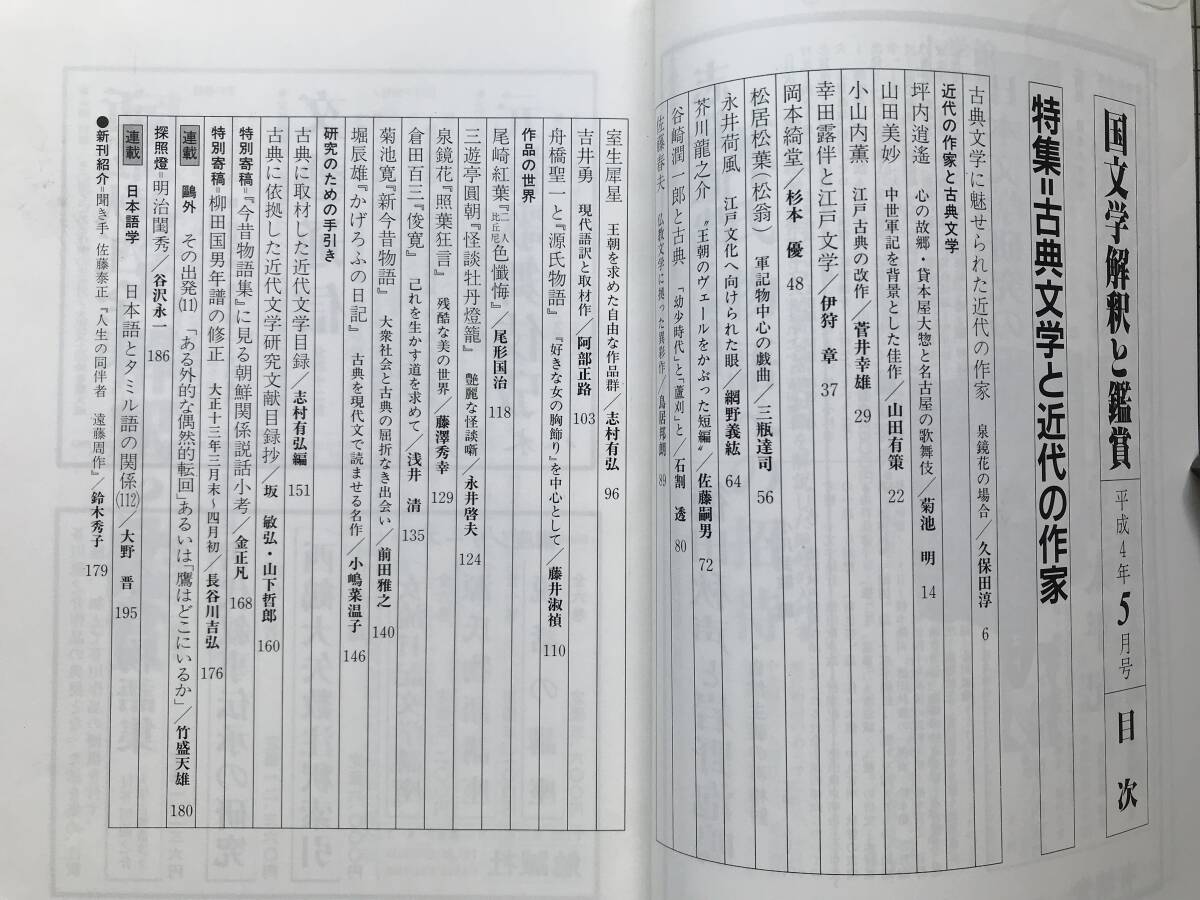 国文学解釈と鑑賞 平成4年5月号 目次
特集=古典文学と近代の作家
古典文学に魅せられた近代の作家 泉鏡花の場合/久保田淳 6
近代の作家と古典文学
坪内逍遙 心の故郷・貸本屋大惣と名古屋の歌舞伎/菊池 明 14
山田美妙 中世軍記を背景とした佳作/山田有策 22
小山内薫 江戸古典の改作/菅井幸雄 29
幸田露伴と江戸文学/伊狩 章 37
岡本綺堂/杉本 優 48
松居松葉(松翁) 軍記物中心の戯曲/三瓶達司 56
永井荷風 江戸文化へ向けられた眼/網野義紘 64
芥川龍之介 〝王朝のヴェールをかぶった短編〟/佐藤嗣男 72
谷崎潤一郎と古典 「幼少時代」と「蘆刈」と/石割 透 80
佐藤春夫 仏教文学に拠った異彩作/鳥居邦朗 89
室生犀星 王朝を求めた自由な作品群/志村有弘 96
吉井勇 現代語訳と取材作/阿部正路 103
舟橋聖一と『源氏物語』 『好きな女の胸飾り』を中心として/藤井淑禎 110
作品の世界
尾崎紅葉『二人比丘尼色懺悔』/尾形国治 118
三遊亭圓朝『怪談牡丹燈籠』 艶麗な怪談噺/永井啓夫 124
泉鏡花『照葉狂言』 残酷な美の世界/藤澤秀幸 129
倉田百三『俊寛』 己れを生かす道を求めて/浅井 清 135
菊池寛『新今昔物語』 大衆社会と古典の屈折なき出会い/前田雅之 140
堀辰雄『かげろふの日記』 古典を現代文で読ませる名作/小嶋菜温子 146
研究のための手引き
古典に取材した近代文学目録/志村有弘編 151
古典に依拠した近代文学研究文献目録抄/坂 敏弘・山下哲郎 160
特別寄稿=『今昔物語集』に見る朝鮮関係説話小考/金正凡 168
特別寄稿=柳田国男年譜の修正 大正十三年三月末~四月初/長谷川吉弘 176
連載 鷗外 その出発(11) 「ある外的な偶然的転回」あるいは「鷹はどこにいるか」/竹盛天雄 180
探照燈=明治閨秀/谷沢永一 186
連載 日本語学 日本語とタミル語の関係(112)/大野 晋 195
●新刊紹介=聞き手 佐藤泰正『人生の同伴者 遠藤周作』/鈴木秀子 179